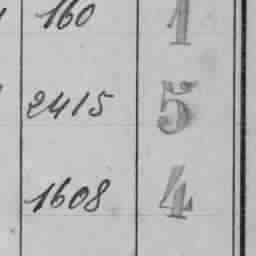 160 1
2415 5
1608 4